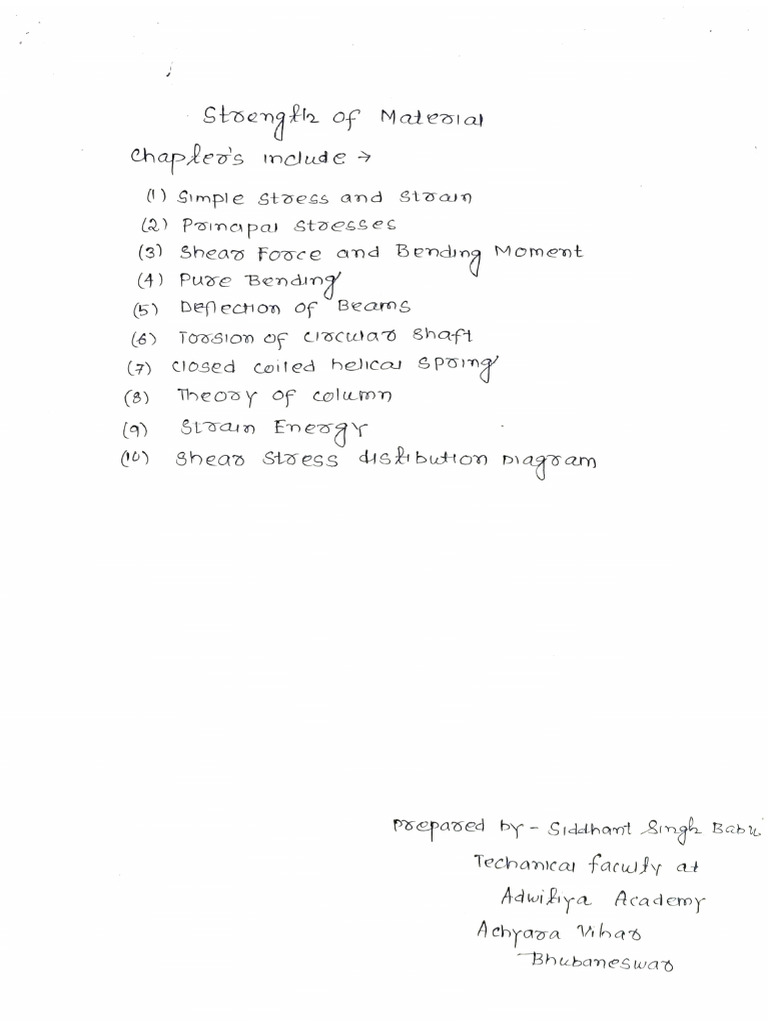 Strength of Material
Chapter's include →
(1) Simple stress and strain
(2) Principal stresses
(3) Shear Force and Bending Moment
(4) Pure Bending
(5) Deflection of Beams
(6) Torsion of circular shaft
(7) closed coiled helical spring
(8) Theory of column
(9) Strain Energy
(10) Shear stress distibution Diagram
Prepared by - Siddhant Singh Babu
Techanical faculty at
Adwitiya Academy
Achyara Vihar
Bhubaneswar